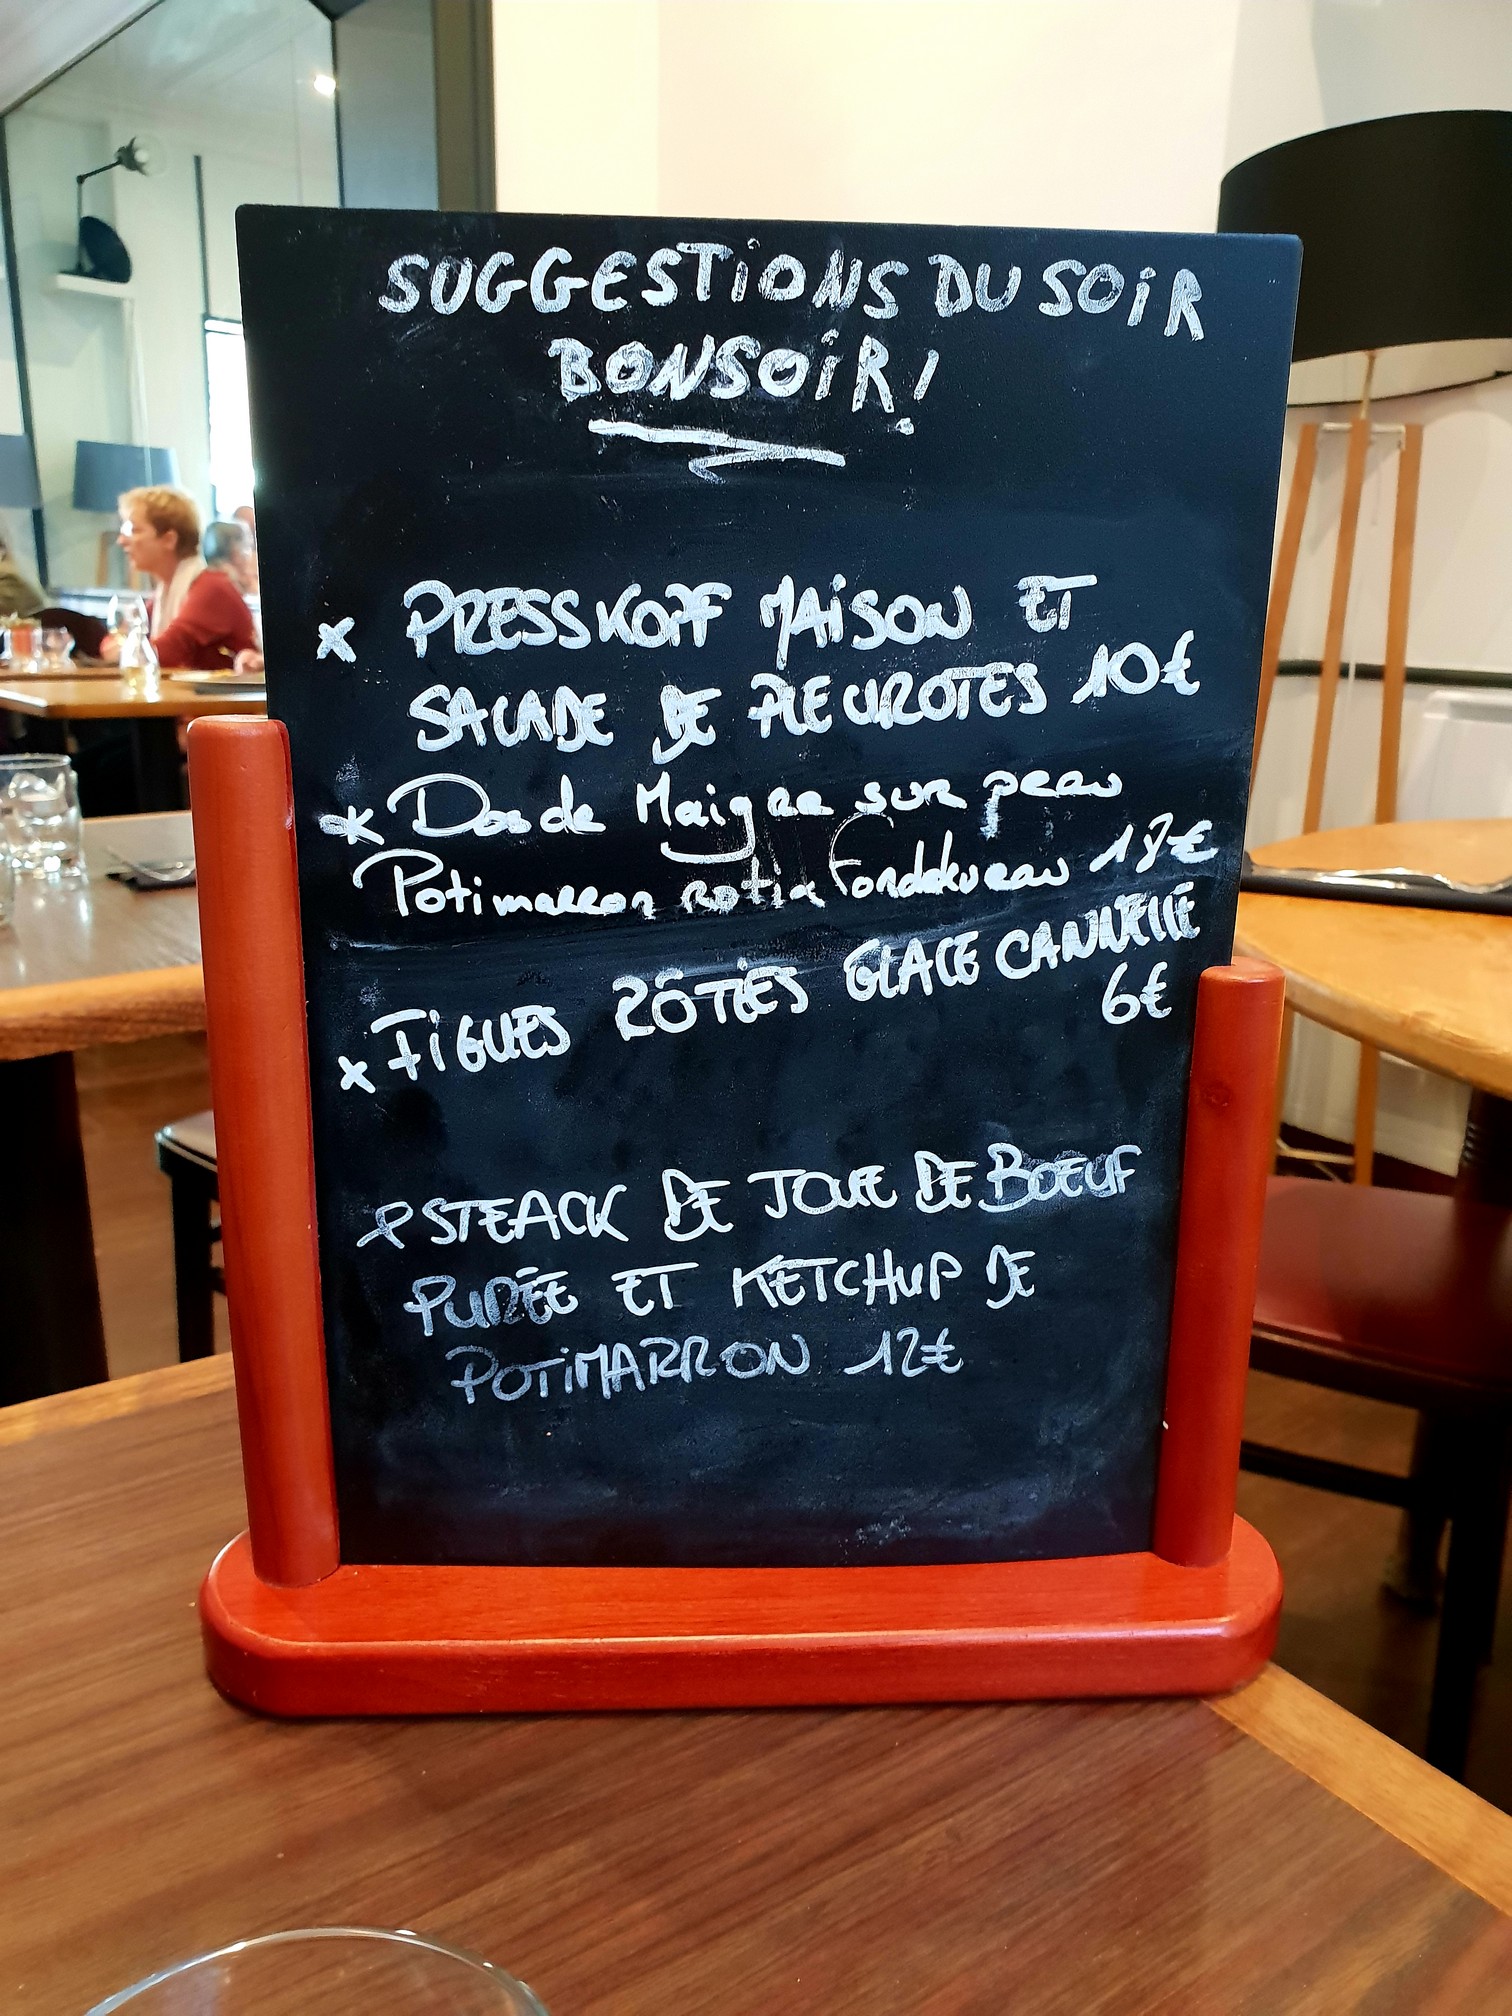 SUGGESTIONS DU SOIR
BONSOIR!
x PRESSKOPF MAISON ET
SALADE DE PLEUROTES 10€
* Dos de Maigre sur peau
Potimarron rotie fond de veau 18€
x FIGUES RÔTIES GLACE CANNELLE
6€
STEACK DE JOUE DE BOEUF
PURÉE ET KETCHUP DE
POTIMARRON 12€